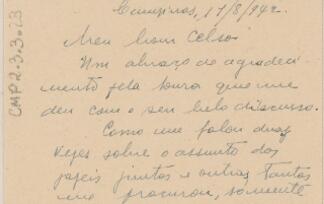 Campinas, 17/8/942.
CMP2.3.3.23
Meu bom Celso:
Um abraço de agradeci
mento pela honra que me
deu com o seu belo discurso.
Como me falou duas
vezes sobre o assunto dos
papeis juntos e outras tantas
me procurou, somente